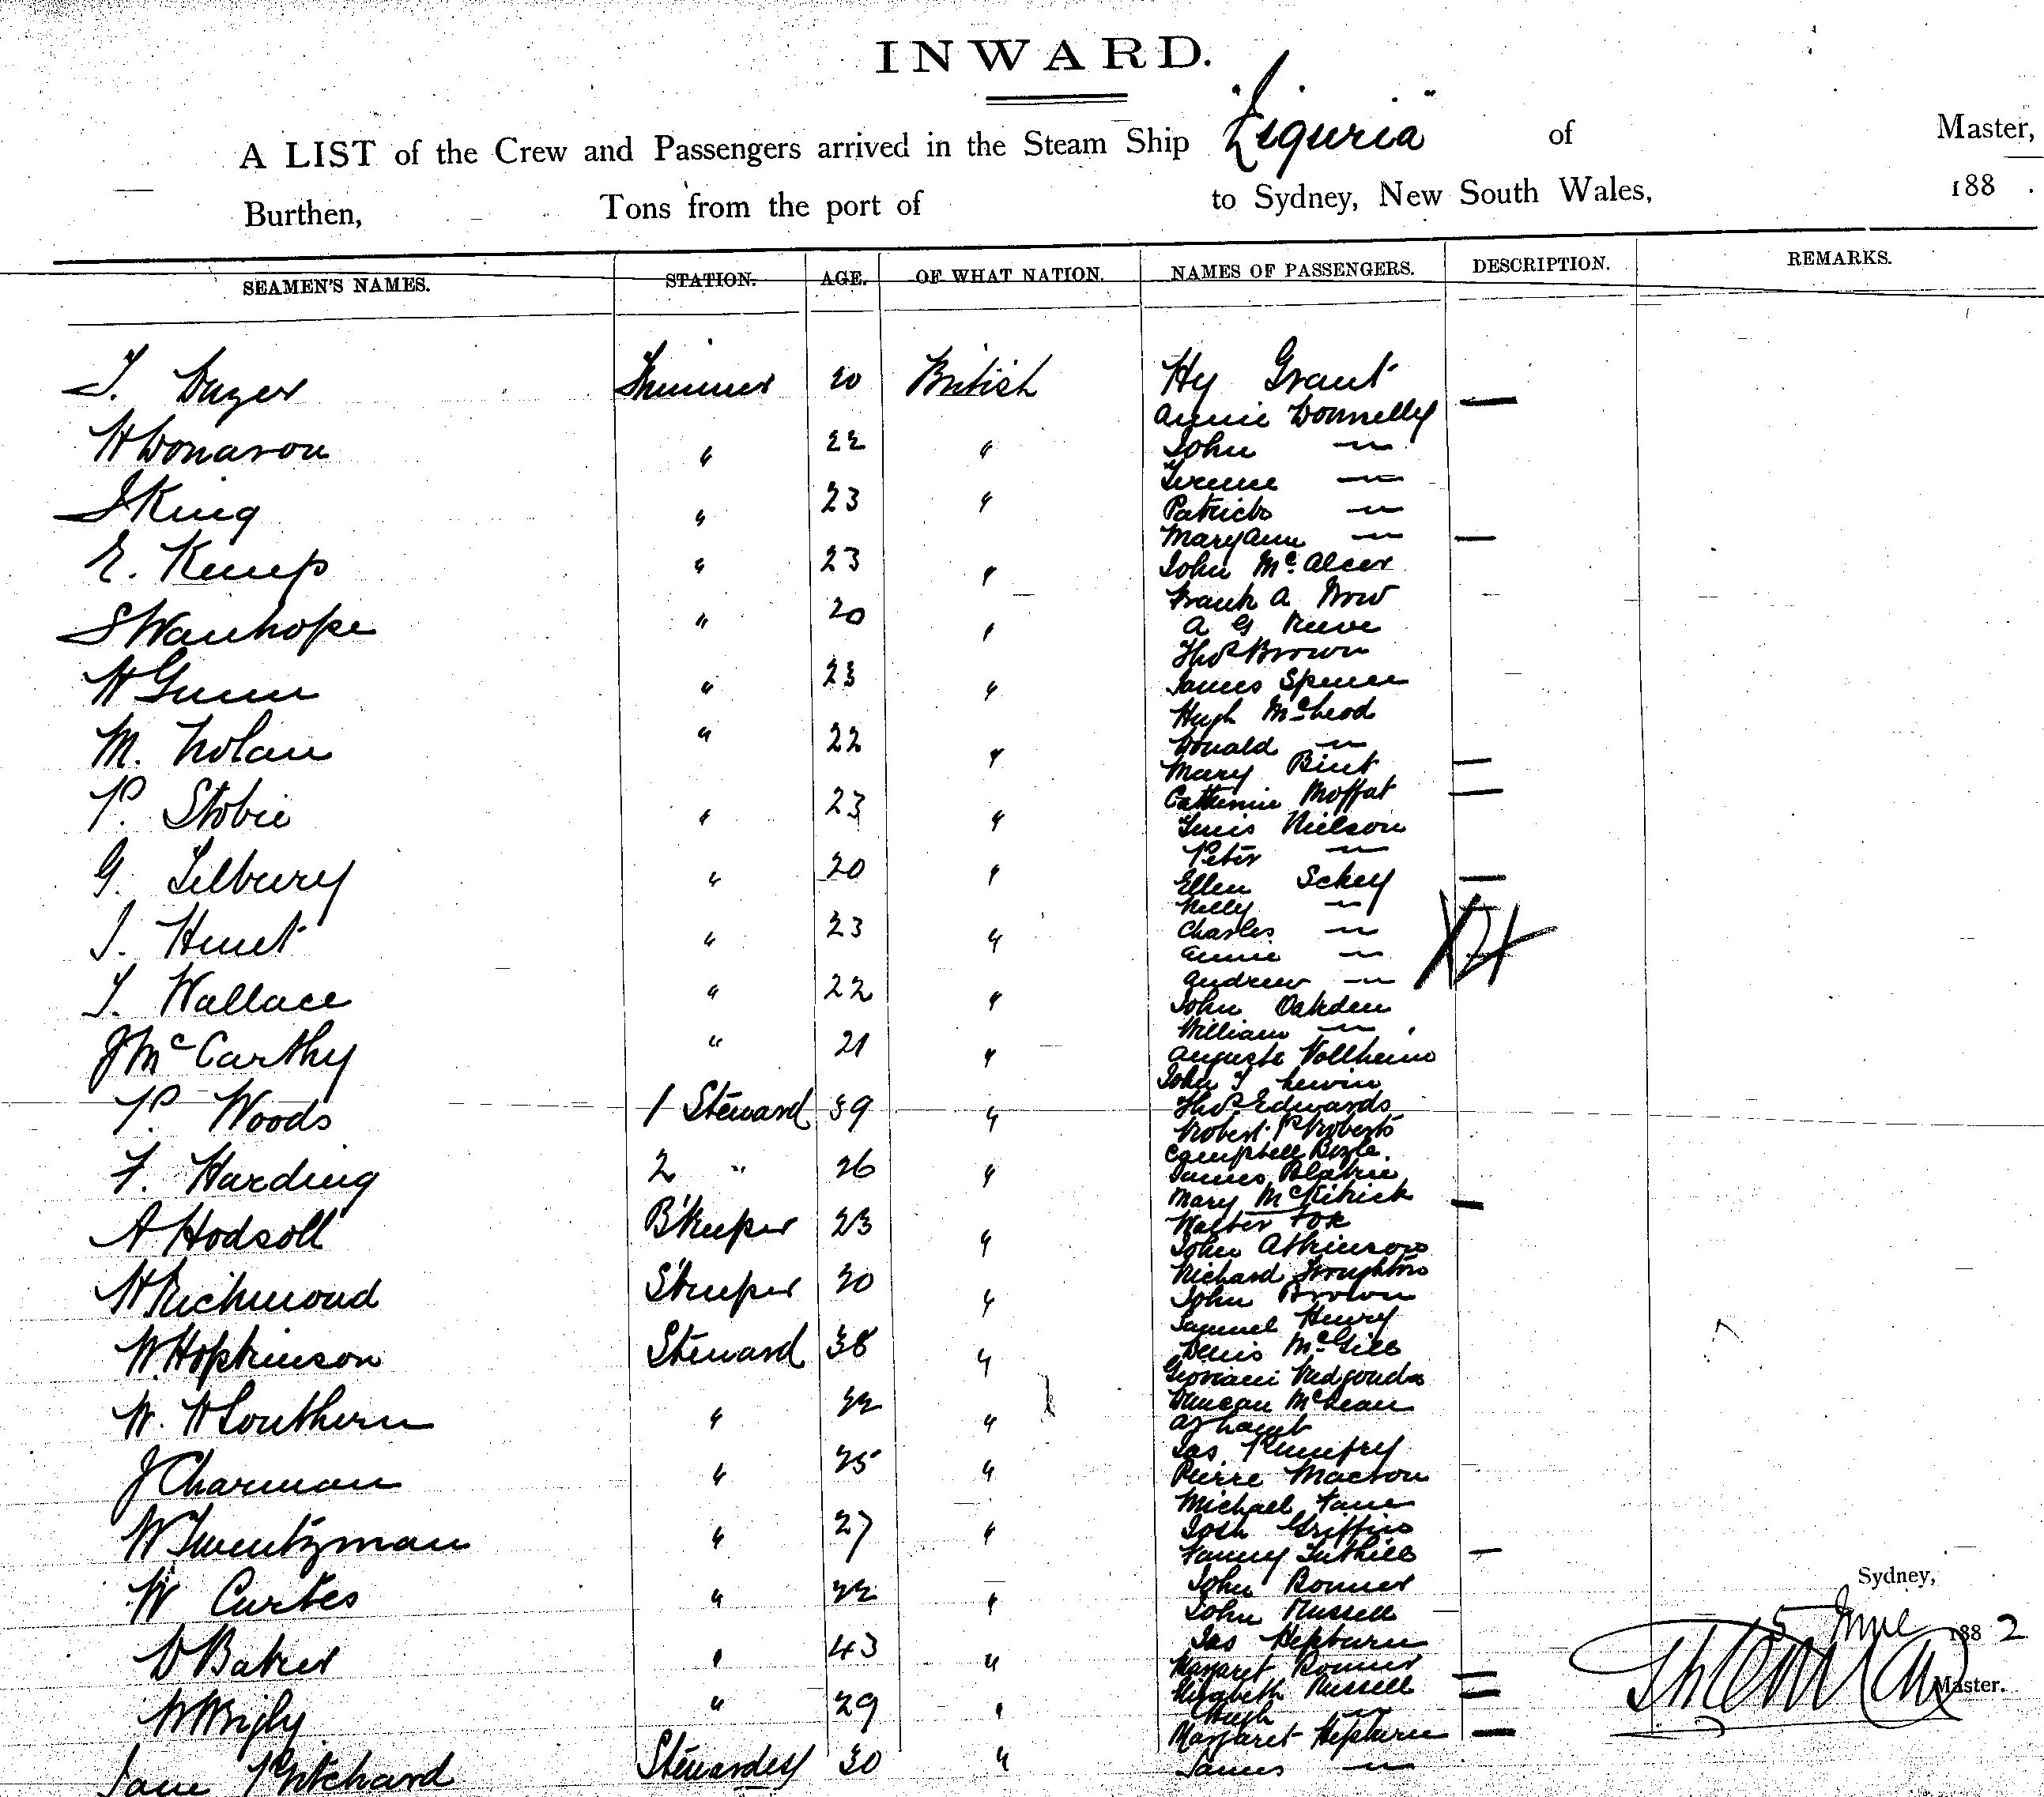 INWARD.
A LIST of the Crew and Passengers arrived in the Steam Ship "Liguria" of Master,
Burthen, Tons from the port of to Sydney, New South Wales, 188 .
SEAMEN'S NAMES. STATION. AGE. OF WHAT NATION. NAMES OF PASSENGERS. DESCRIPTION. REMARKS.
T. Trimmer 20 British
H Donavon " 22 "
J King " 23 "
E. Kemp " 23 "
S Wauhope " 20 "
H Gunn " 23 "
M. Nolan " 22 "
P. Stobie " 23 "
G. Tilbury " 20 "
J. Hunt " 23 "
T. Wallace " 22 "
J McCarthy " 21 "
P. Woods 1 Steward 39 "
F. Harding 2 " 26 "
A Hodsoll B'Keeper 23 "
H Richmond S'Keeper 30 "
W Hopkinson Steward 38 "
W. H Southern " 22 "
J Charman " 25 "
W Twentyman " 27 "
W Curtes " 22 "
D Baker " 43 "
W Wrigly " 29 "
Jane Pritchard Stewardess 30 "
Hy Grant
Annie Donnelly —
John —"—
Terence —"—
Patrick —"—
Mary Ann —"— —
John McAleer
Frank A
A G Reeve
Thos Brown
James Spence
Hugh McLeod
Donald —"—
Mary Bint —
Catherine Moffat —
Nielson
Peter —"—
Ellen Schey —
Nelly —"—
Charles —"—
Annie —"—
Andrew —"—
John Oakden
William —"—
Auguste Vollheim
John T Lewin
Thos Edwards
Robert P Roberts
Campbell Boyle.
James
Mary McKitrick —
Walter Fox
John Atkinson
Richard Troughton
John Brown
Samuel Henry
Denis McGill
Duncan McLean
A J Lamb
Jas Pumfrey
Pierre Macron
Michael
Josh Griffin
Fanny Tuthill —
John Bonner
John Russell
Jas Hepburn
Margaret Bonner —
Elizabeth Russell —
Hugh —"—
Margaret Hepburn —
James —"—
Sydney,
5 June 1882
Master.